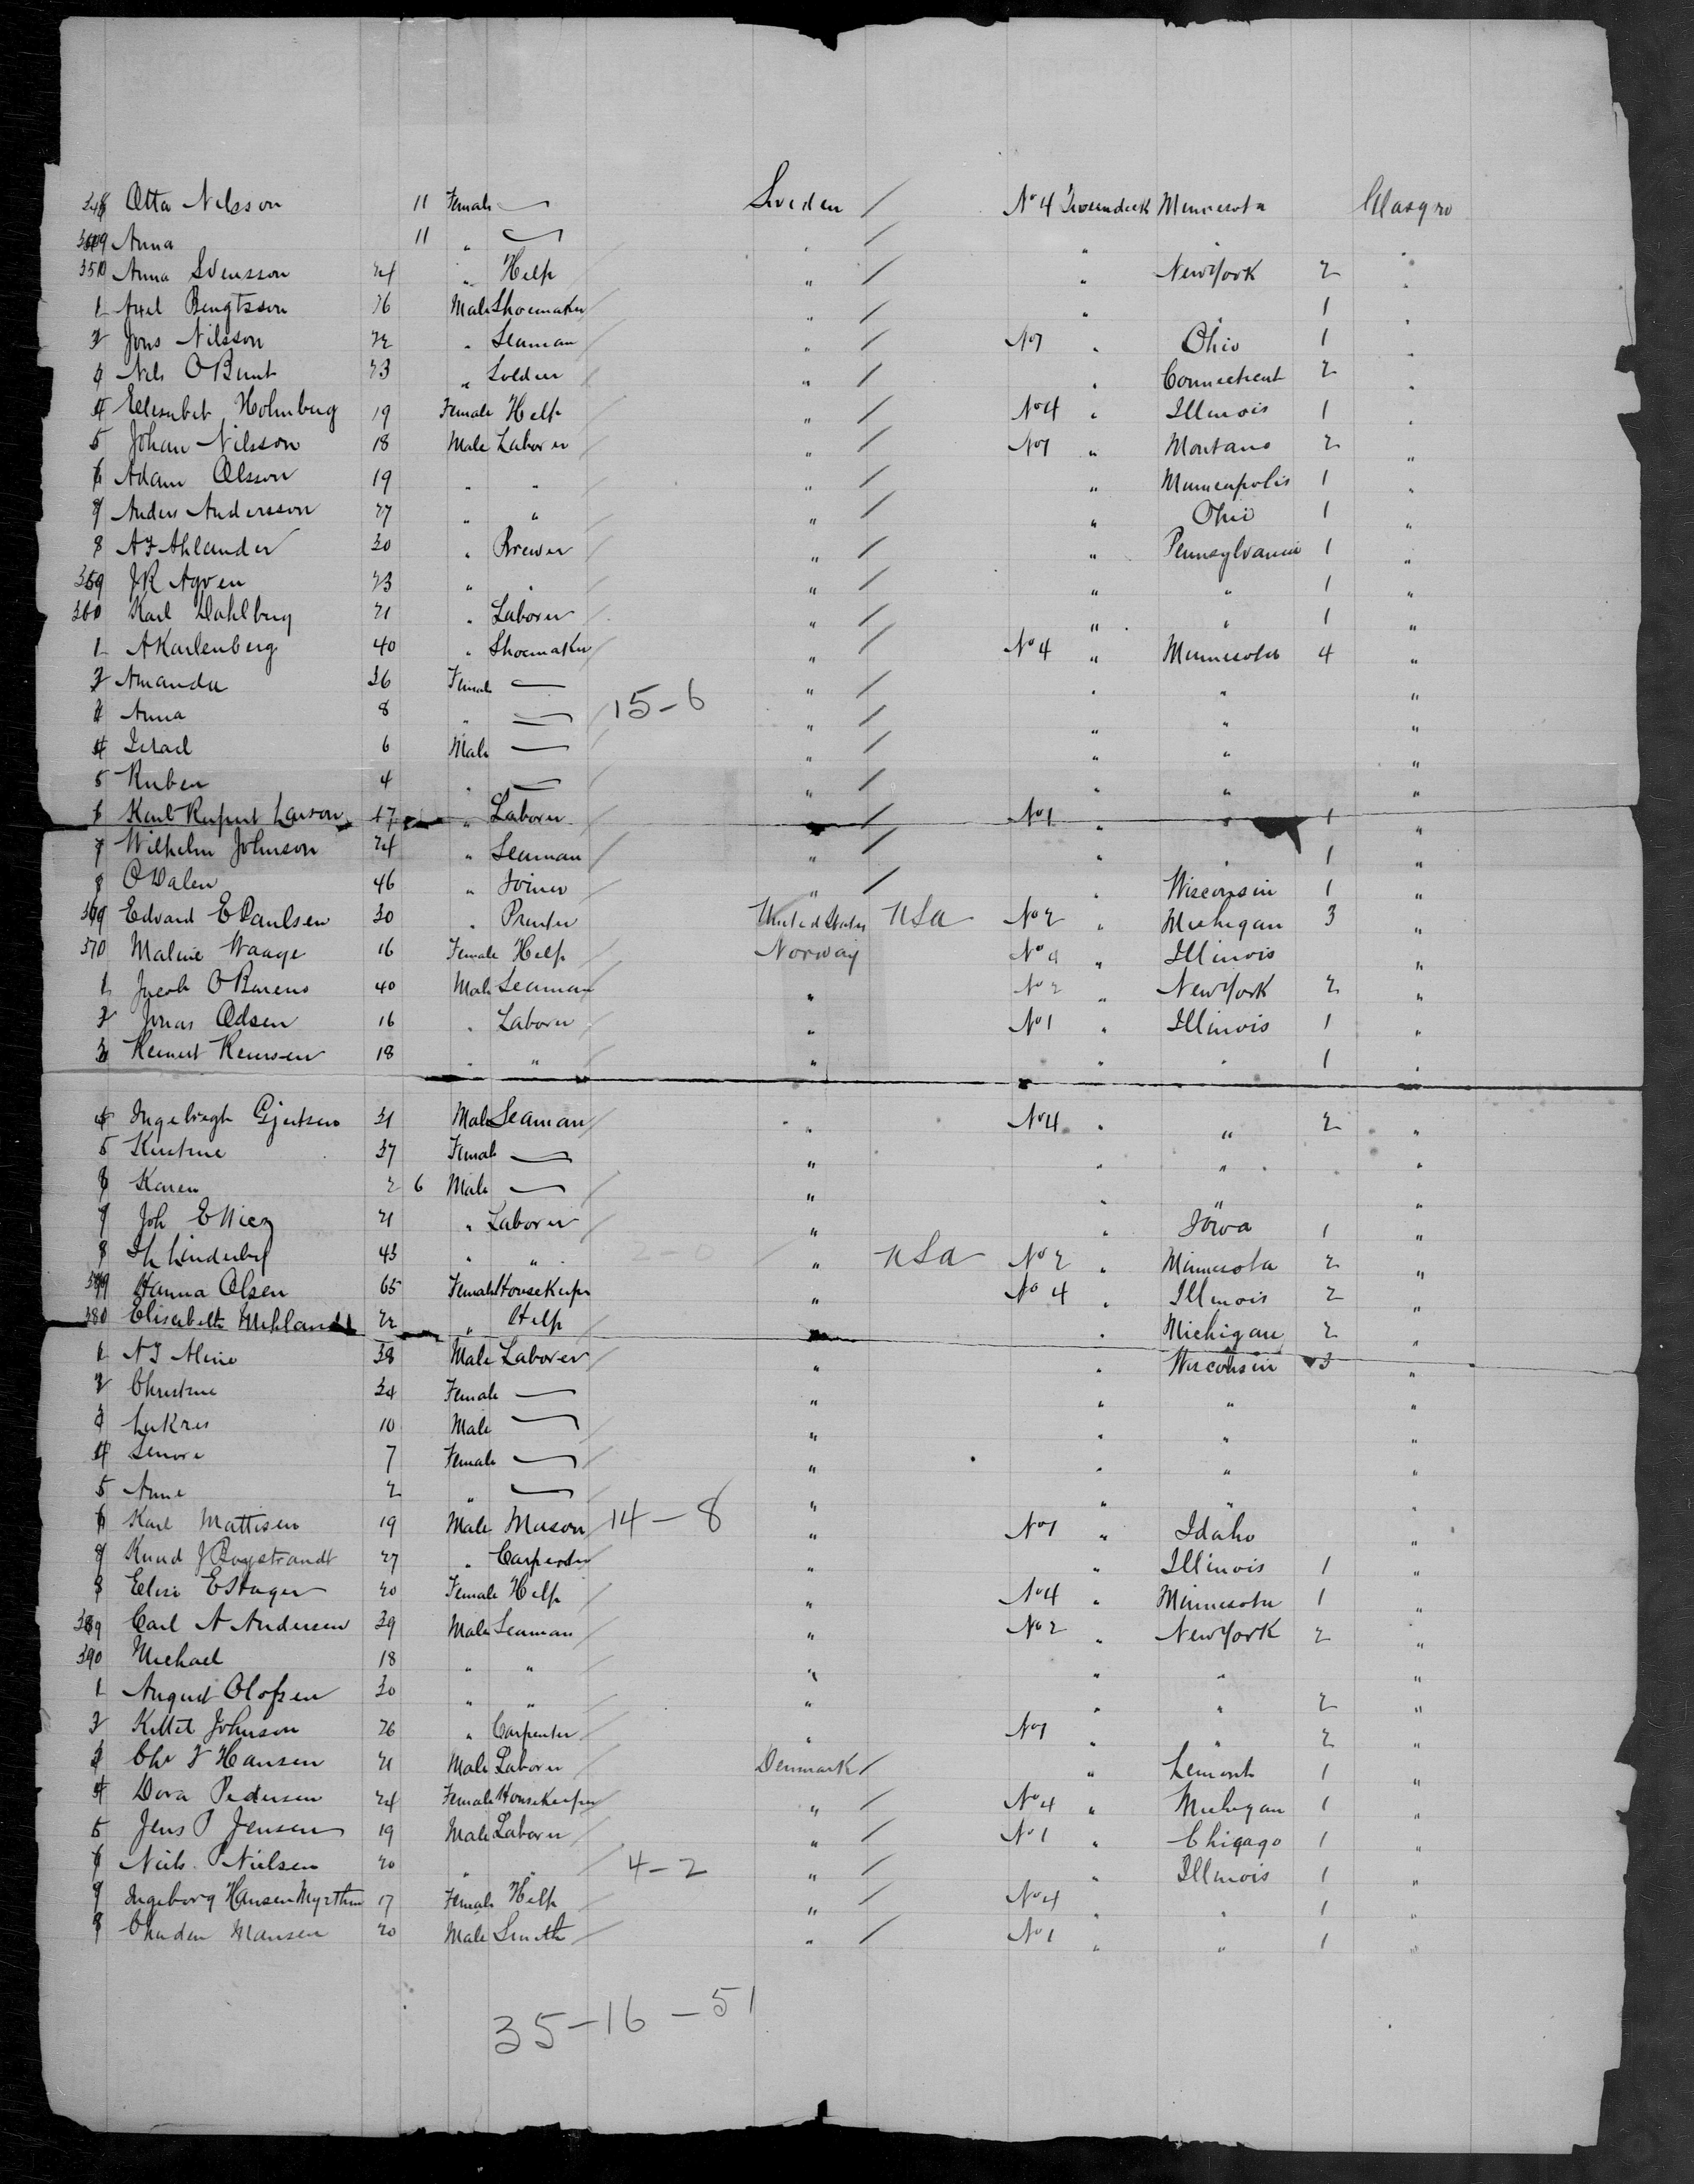 348 Otta Nilsson 11 Female — Sveden / No 4 Tweendeck Minnesota Glasgow
349 Anna 11 " — " / " " "
350 Anna Svensson 24 " Help / " / " New York 2 "
1 Axel Bengtsson 26 Male Shoemaker / " / " " 1 "
2 Jons Nilsson 22 " Seaman / " / No 1 " Ohio 1 "
3 Nils O Bunt 23 " Soldier / " / " Connecticut 2 "
4 Elisabet Holmberg 19 Female Help / " / No 4 " Illinois 1 "
5 Johan Nilsson 18 Male Laborer / " / No 1 " Montano 2 "
6 Adam Olsson 19 " " / " / " Minneapolis 1 "
7 Anders Andersson 27 " " / " / " Ohio 1 "
8 A F Ahlander 30 " Brewer / " / " Pennsylvania 1 "
359 J R Agren 23 " " / " / " " 1 "
360 Karl Dahlberg 21 " Laborer / " / " " 1 "
1 A Karlenberg 40 " Shoemaker / " / No 4 " Minnesota 4 "
2 Amanda 36 Female — " / " " "
3 Anna 8 " — / 15-6 " / " " "
4 Israel 6 Male — / " / " " "
5 Ruben 4 " — / " / " " "
6 Karl Rupert Larson 17 " Laborer / " / No 1 " " 1 "
7 Wilhelm Johnson 24 " Seaman / " / " " 1 "
8 O Dalen 46 " Joiner / " / " Wisconsin 1 "
369 Edvard E Paulsen 30 " Printer United States USA No 2 " Michigan 3 "
370 Maline Waage 16 Female Help / Norway No 4 " Illinois "
1 Jacob O Barens 40 Male Seaman / " No 2 " New York 2 "
2 Jonas Odsen 16 " Laborer / " No 1 " Illinois 1 "
3 18 " " / " " " 1 "
4 Ingebregt Gjertsen 31 Male Seaman / " No 4 " " 2 "
5 Kirstine 37 Female — " " " "
6 Karen 2 6 Male — / " " " "
7 Joh E 21 " Laborer / " " Iowa 1 "
8 Th Linderberg 43 " " 2-0 / " USA No 2 " Minnesota 2 "
379 Hanna Olsen 65 Female Housekeeper " No 4 " Illinois 2 "
380 Elisabeth 22 " Help / " " Michigan 2 "
1 N J 38 Male Laborer / " " Wisconsin 3 "
2 Christine 34 Female — " " " "
3 10 Male — / " " " "
4 Lenore 7 Female — / " " " "
5 Anne 2 " — / " " " "
6 Karl Mattisen 19 Male Mason / 14-8 " No 1 " Idaho "
7 Knud J Bogstrandt 27 " Carpenter " " Illinois 1 "
8 Elise E Stager 20 Female Help / " No 4 " Minnesota 1 "
389 Carl A Andersen 39 Male Seaman / " No 2 " New York 2 "
390 Michael 18 " " / " " " "
1 August Olofsen 30 " " / " " " 2 "
2 Kittel Johnson 26 " Carpenter / " No 1 " " 2 "
3 Chr F Hansen 21 Male Laborer / Denmark / " Lemont 1 "
4 Dora Pedersen 24 Female Housekeeper / " / No 4 " Michigan 1 "
5 Jens P Jensen 19 Male Laborer / " / No 1 " Chigago 1 "
6 Niels P Nielsen 20 " " / 4-2 " / " Illinois 1 "
7 Ingeborg Hansen 17 Female Help / " / No 4 " " 1 "
8 Hansen 20 Male Smith / " / No 1 " " 1 "
35-16-51